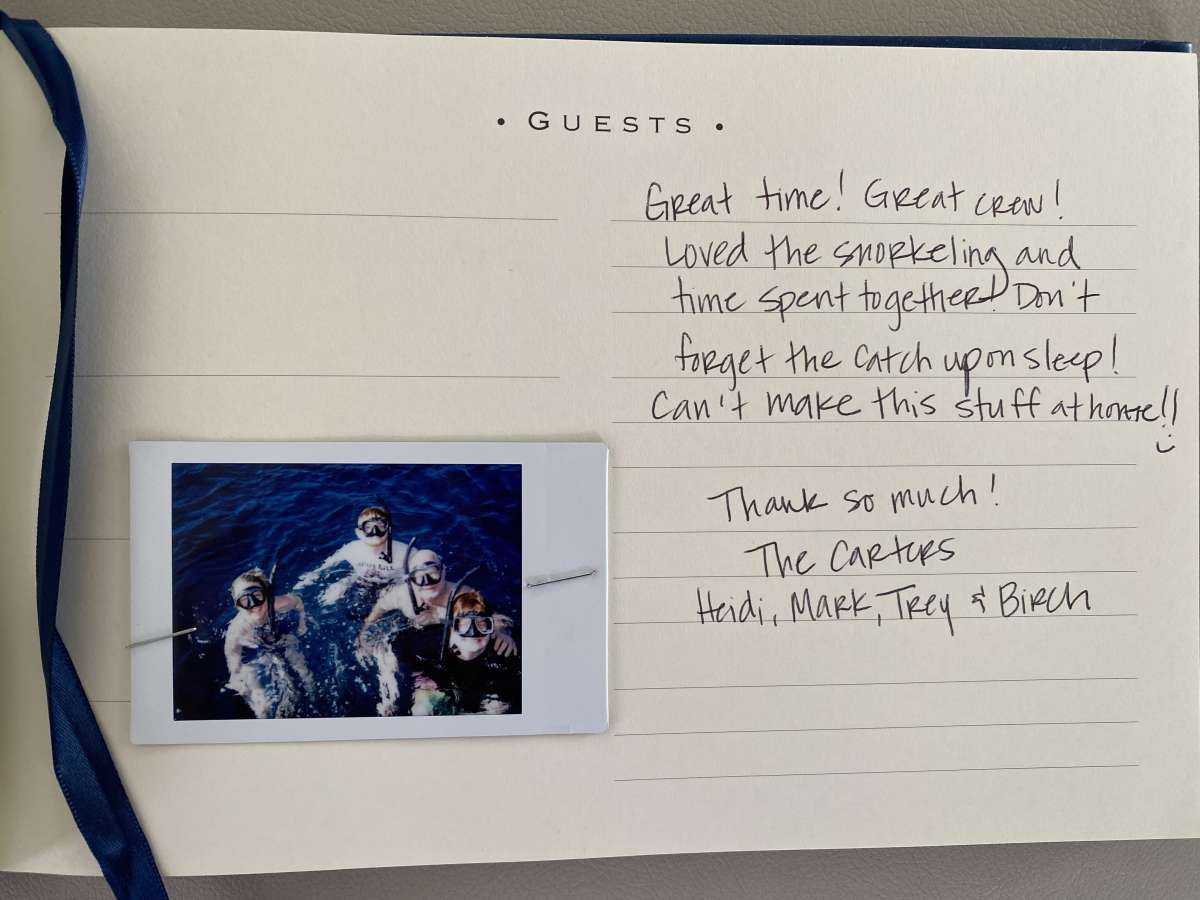 • GUESTS •
Great time! Great crew!
Loved the snorkeling and
time spent together! Don't
forget the catch up on sleep!
Can't make this stuff at home!!
Thank so much!
The Carters
Heidi, Mark, Trey & Birch